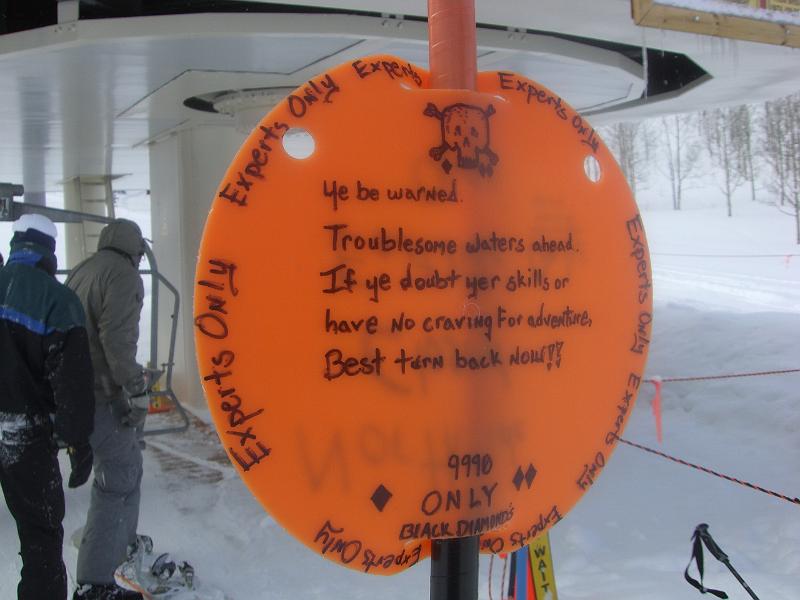 Ye be warned.
Troublesome waters ahead.
If ye doubt yer skills or
have No craving For adventure,
Best turn back NOW!!
9990
ONLY
BLACK DIAMONDS
Experts Only
Experts Only
Experts Only
Experts Only
Experts Only
Experts Only
Experts Only
Experts Only
Experts On
WAIT